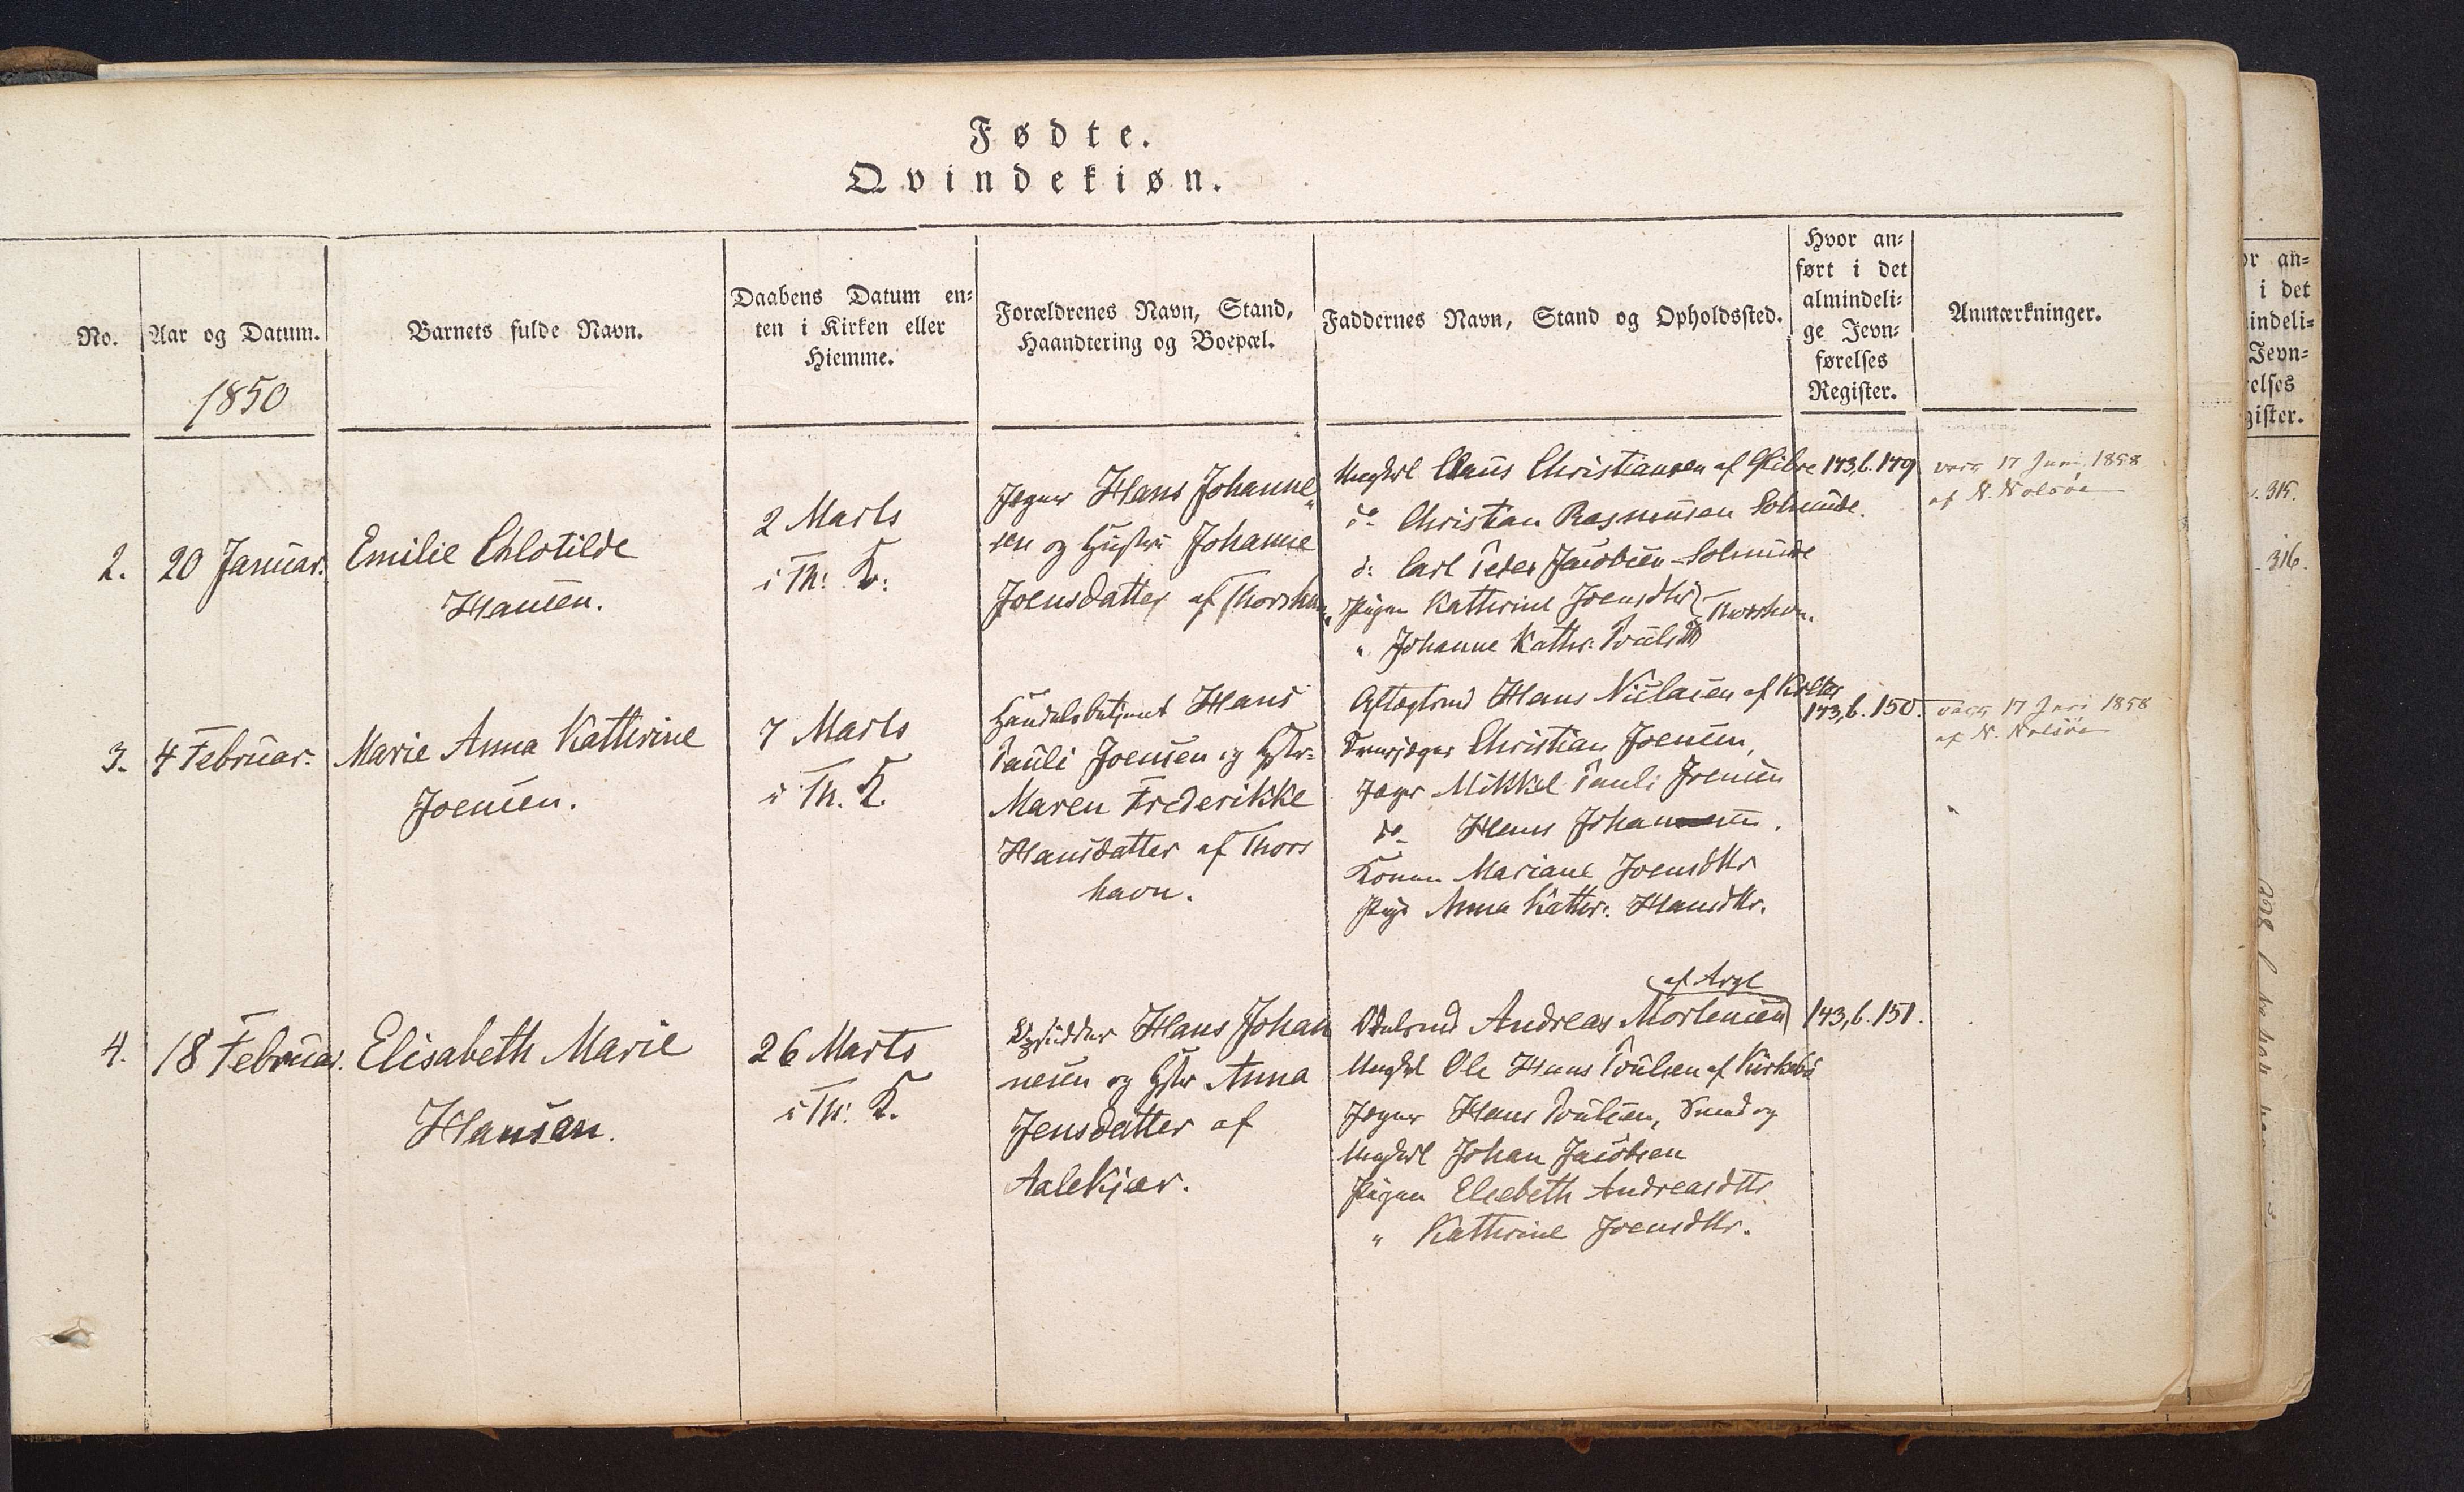 Fødte.
Qvindekiøn.
No.
Aar og Datum.
1850
Barnets fulde Navn.
Daabens Datum en-
ten i Kirken eller
Hiemme.
Forældrenes Navn, Stand,
Haandtering og Boepæl.
Faddernes Navn, Stand og Opholdssted.
Hvor an-
ført i det
almindeli-
ge Jevn-
førelses
Register.
Anmærkninger.
2.
20 Januar.
Emilie Chlotilde
Hansen.
2 Marts
i Th: K:
Jæger Hans Johanne„
sen og Hustru Johanne
Joensdatter af Thorshavn
Ungkrl Claus Christiansen af
do Christian Rasmussen
d: Carl Peder Jacobsen
Pigen Kathrine Joensdtr
" Johanne Kathr: Poulsdtr
Thorshvn.
143,b.149
vacc 17 Juni 1858
af N. Nolsøe
3.
4 Februar.
Marie Anna Kathrine
Joensen.
7 Marts
i Th. K.
Handelsbetjent Hans
Pauli Joensen og Hstr:
Maren Frederikke
Hansdatter af Thors
havn.
Aftægtsmd Hans Niclasen af Kolter
Christian Joensen,
Jæger Mikkel Pauli Joensen
do Hans
Konen Mariane Joensdtr
Pige Anna Kathr: Hansdtr.
143,b.150.
vacc 17 Juni 1858
af N. Nolsøe
4.
18 Februar.
Elisabeth Marie
Hansen.
26 Marts
i Th: K.
Hans Johan
nesen og Hstr Anna
Jensdatter af
Aalekjær.
af Arge
Odelsmd Andreas Mortensen
Ungkrl Ole Hans Poulsen af Kirkebø
Jæger Hans Poulsen, Sund og
Ungkrl Johan Jacobsen
Pigen Elsebeth Andreasdtr
" Kathrine Joensdtr.
143,b.151.
or an-
i det
indeli-
Jevn-
relses
gister.
315.
316.